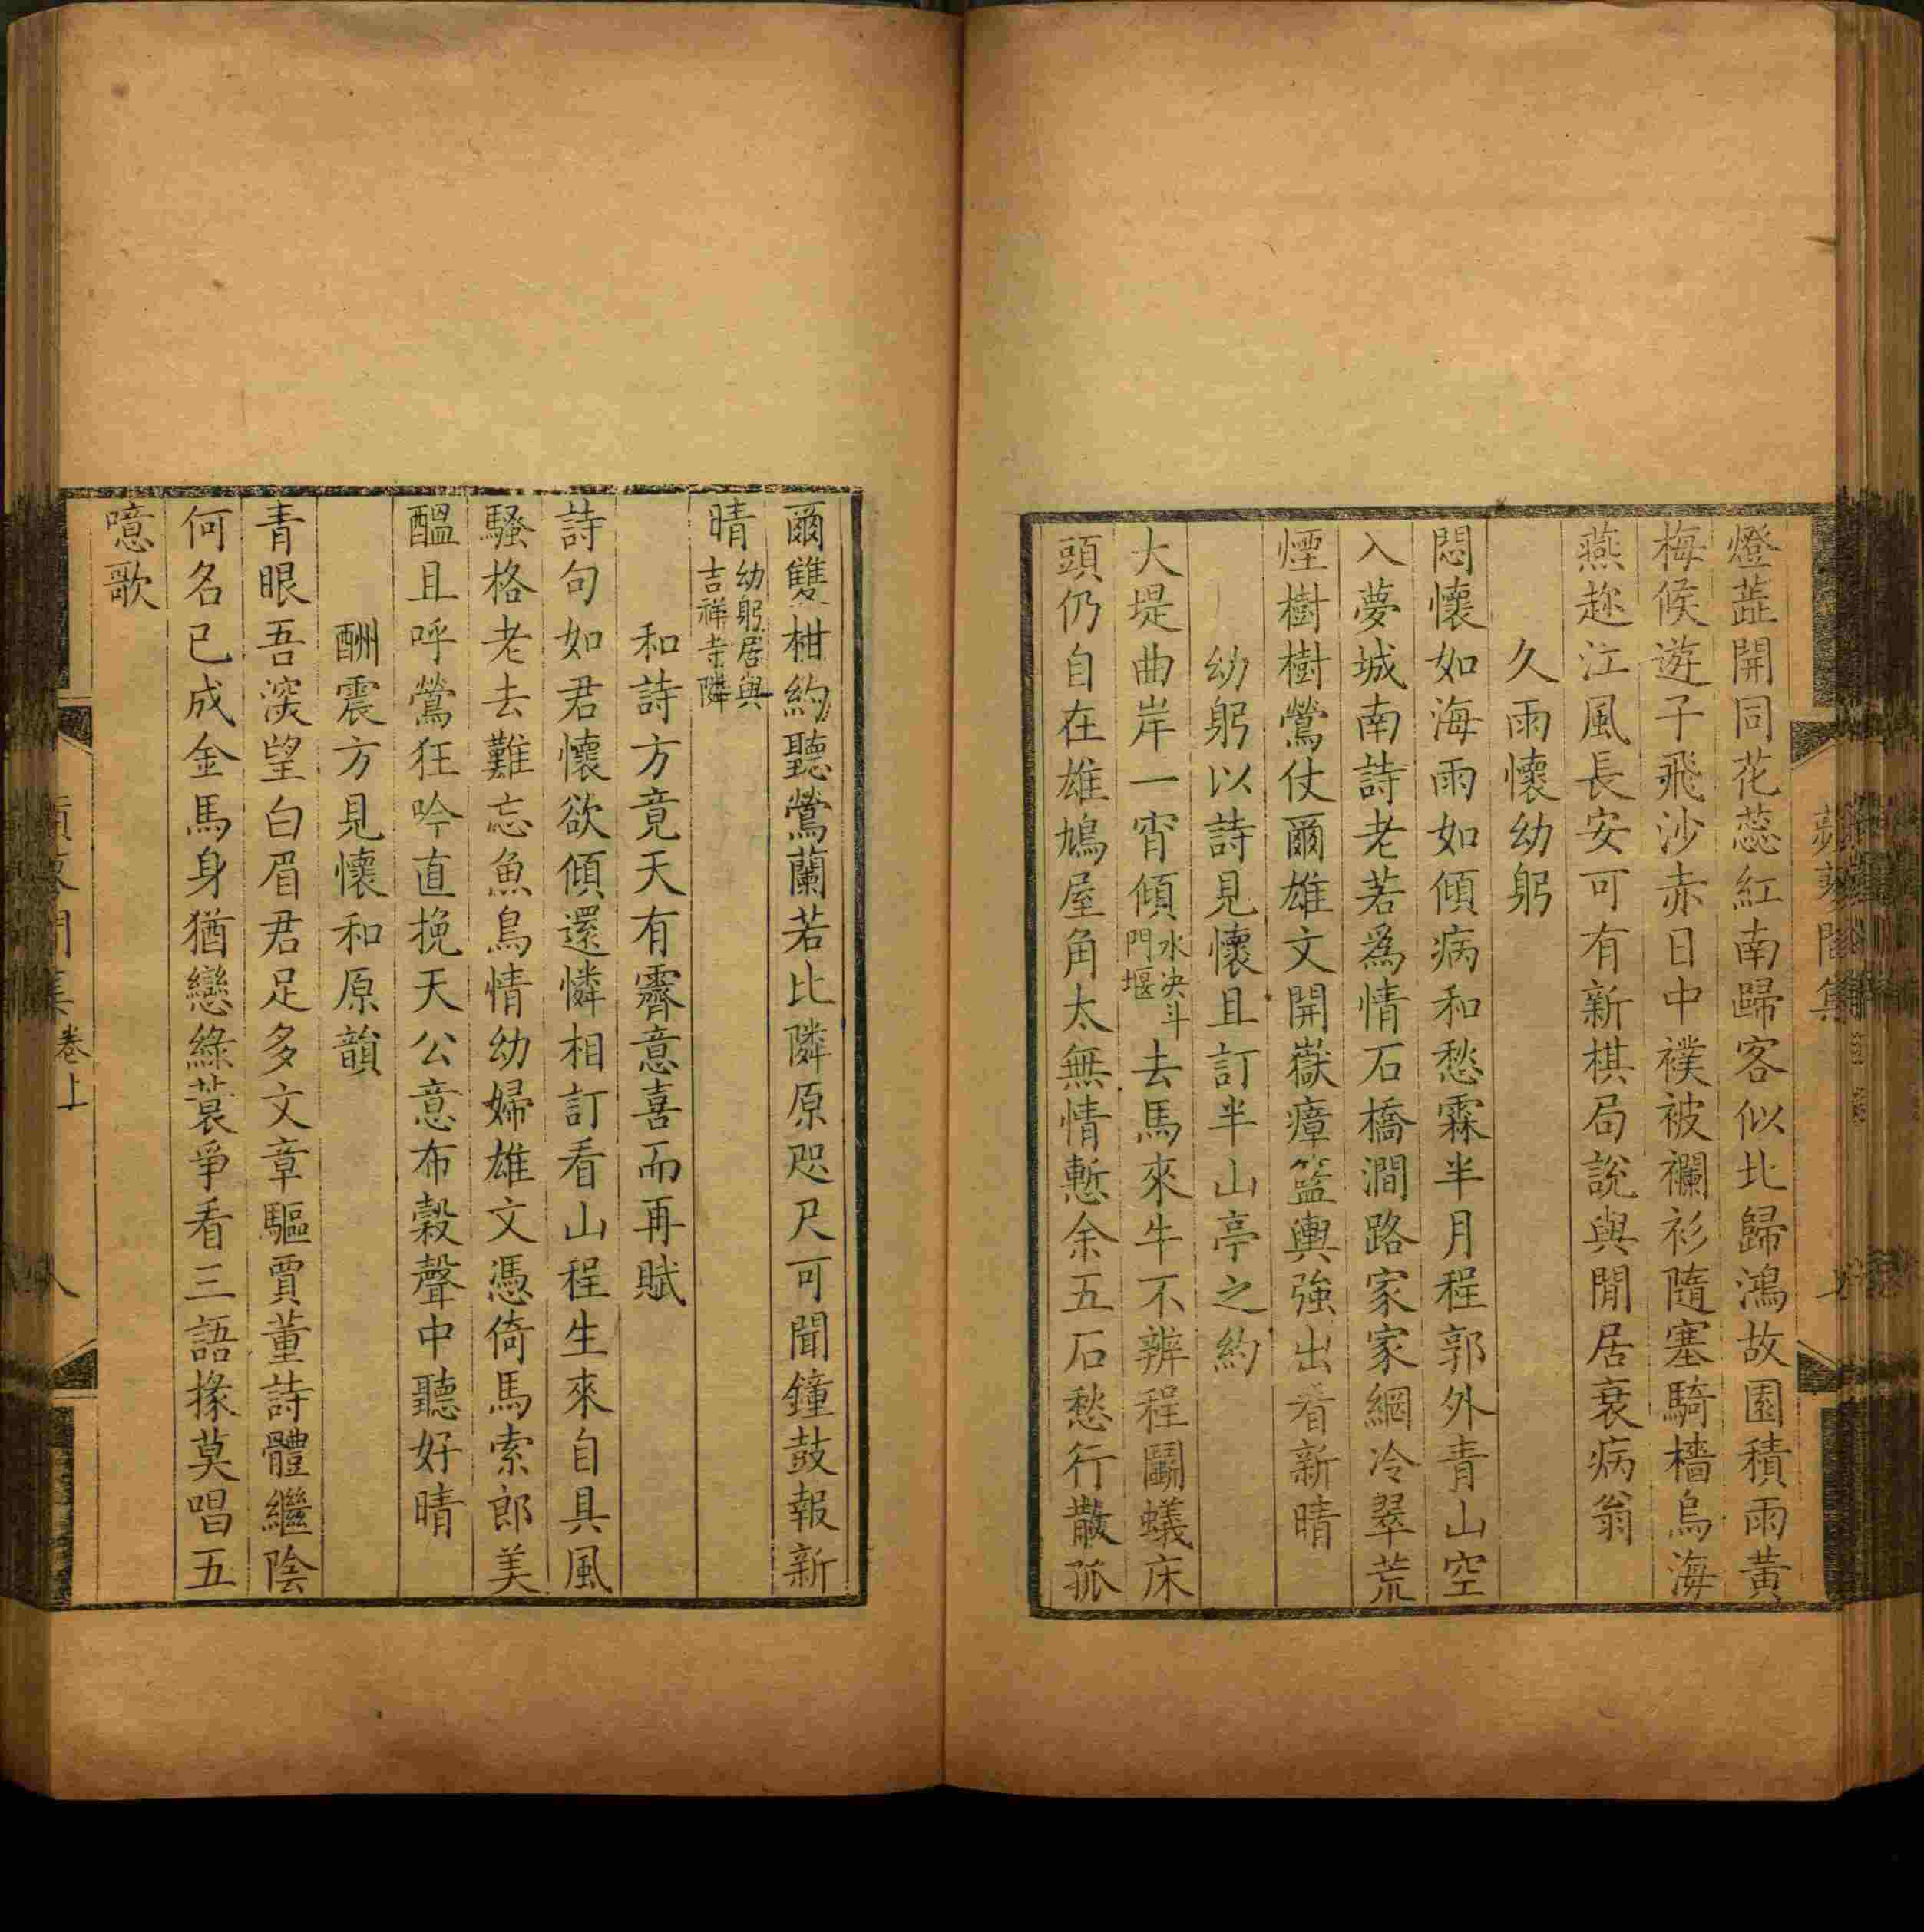 燈蕋開同花蕊紅南歸客似北歸鴻故園積雨黃
梅候遊子飛沙赤日中襆被襴衫隨塞騎檣烏海
燕趂江風長安可有新棋局說與閒居衰病翁
久雨懷幼躬
悶懷如海雨如傾病和愁霖半月程郭外青山空
入夢城南詩老若為情石橋澗路家家網冷翠荒
煙樹樹鶯仗爾雄文開嶽瘴籃輿強出看新晴
幼躬以詩見懷且訂半山亭之約
大堤曲岸一宵傾水決斗門堰去馬來牛不辨程鬭蟻床
頭仍自在雄鳩屋角太無情慙余五石愁行散孤
爾雙柑約聽鶯蘭若比隣原咫尺可聞鐘鼓報新
晴幼躬居與吉祥寺隣
和詩方竟天有霽意喜而再賦
詩句如君懷欲傾還憐相訂看山程生來自具風
騷格老去難忘魚鳥情幼婦雄文憑倚馬索郎美
醞且呼鶯狂吟直挽天公意布穀聲中聽好晴
酬震方見懷和原韻
青眼吾深望白眉君足多文章驅賈董詩體繼陰
何名已成金馬身猶戀綠蓑爭看三語掾莫唱五
噫歌
卷上
八